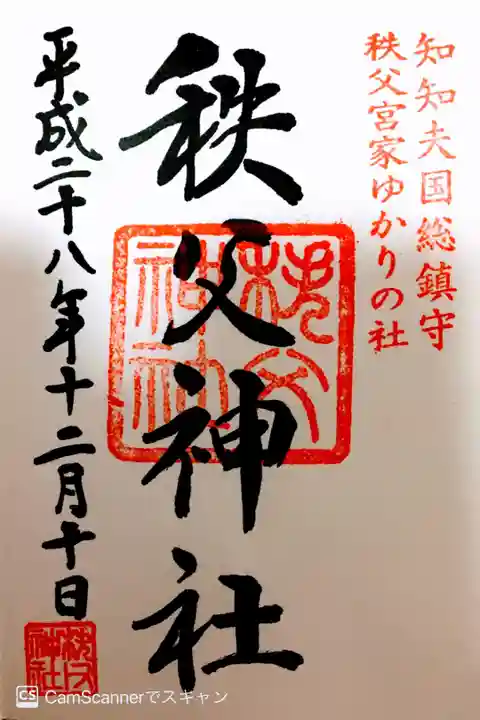 知知夫国総鎮守
秩父宮家ゆかりの社
秩父神社
秩父神社
平成二十八年十二月十日
秩父神社
CS CamScannerでスキャン